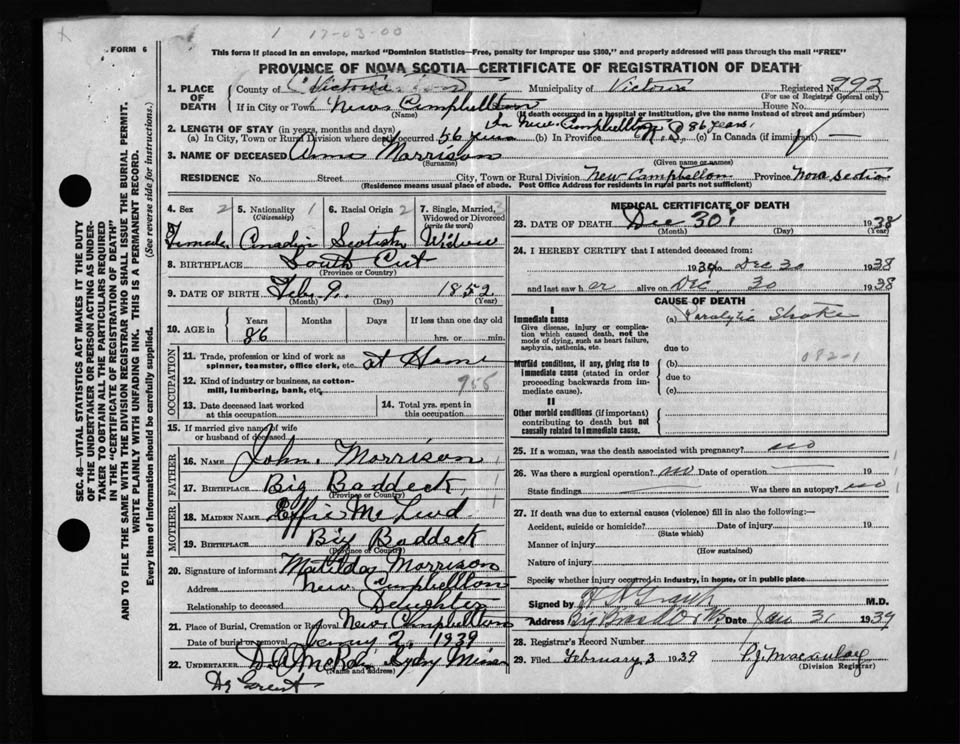 1 17-03-00
FORM 6
This form if placed in an envelope, marked "Dominion Statistics—Free, penalty for improper use $300," and properly addressed will pass through the mail "FREE"
PROVINCE OF NOVA SCOTIA—CERTIFICATE OF REGISTRATION OF DEATH
1. PLACE OF DEATH
County of Victoria Municipality of Victoria Registered No. 992
(For use of Registrar General only)
If in City or Town New Campbellton House No.
(Name) (If death occurred in a hospital or institution, give its name instead of street and number)
2. LENGTH OF STAY (in years, months and days) In New Campbellton 86 years
(a) In City, Town or Rural Division where death occurred 56 years (b) In Province (c) In Canada (if immigrant) —
3. NAME OF DECEASED Annie Morrison
(Surname) (Given name or names)
RESIDENCE No. Street City, Town or Rural Division New Campbellton Province Nova Scotia
(Residence means usual place of abode. Post Office Address for residents in rural parts not sufficient)
4. Sex 2 5. Nationality 1 (Citizenship) 6. Racial Origin 2 7. Single, Married, Widowed or Divorced (write the word) 3
Female Canadian Scotish Widow
8. BIRTHPLACE South Cut
(Province or Country)
9. DATE OF BIRTH Feb. 9. 1852
(Month) (Day) (Year)
10. AGE in Years Months Days If less than one day old
86 hrs. or min.
OCCUPATION
11. Trade, profession or kind of work as spinner, teamster, office clerk, etc. at Home
12. Kind of industry or business, as cotton-mill, lumbering, bank, etc. 955
13. Date deceased last worked at this occupation
14. Total yrs. spent in this occupation
15. If married give name of wife or husband of deceased
FATHER
16. NAME John Morrison
17. BIRTHPLACE Big Baddeck
(Province or Country)
MOTHER
18. MAIDEN NAME Effie McLeod
19. BIRTHPLACE Big Baddeck
(Province or Country)
20. Signature of informant Matilda Morrison
Address New Campbellton
Relationship to deceased Daughter
21. Place of Burial, Cremation or Removal New Campbellton
Date of burial or removal 2, 1939
22. UNDERTAKER Sydney Mines
(Name and address)
MEDICAL CERTIFICATE OF DEATH
23. DATE OF DEATH Dec 30 1938
(Month) (Day) (Year)
24. I HEREBY CERTIFY that I attended deceased from:
to Dec 30 1938
and last saw h er alive on Dec. 30 1938
CAUSE OF DEATH
I
Immediate cause (a) Paralytic Stroke
Give disease, injury or complication which caused death, not the mode of dying, such as heart failure, asphyxia, asthenia, etc.
due to
082-1
Morbid conditions, if any, giving rise to immediate cause (stated in order proceeding backwards from immediate cause).
(b)
due to
(c)
II
Other morbid conditions (if important) contributing to death but not causally related to immediate cause.
25. If a woman, was the death associated with pregnancy? no
26. Was there a surgical operation? no Date of operation 19
State findings Was there an autopsy? no
27. If death was due to external causes (violence) fill in also the following:
Accident, suicide or homicide? Date of injury 19
(State which)
Manner of injury
(How sustained)
Nature of injury
Specify whether injury occurred in industry, in home, or in public place
Signed by M.D.
Address Date Jan 31 1939
28. Registrar's Record Number
29. Filed February 3 1939 P.J. Macaulay
(Division Registrar)
SEC. 46—VITAL STATISTICS ACT MAKES IT THE DUTY
OF THE UNDERTAKER OR PERSON ACTING AS UNDER-
TAKER TO OBTAIN ALL THE PARTICULARS REQUIRED
IN THE "CERTIFICATE OF REGISTRATION OF DEATH"
AND TO FILE THE SAME WITH THE DIVISION REGISTRAR WHO SHALL ISSUE THE BURIAL PERMIT.
WRITE PLAINLY WITH UNFADING INK. THIS IS A PERMANENT RECORD.
Every item of information should be carefully supplied. (See reverse side for instructions.)